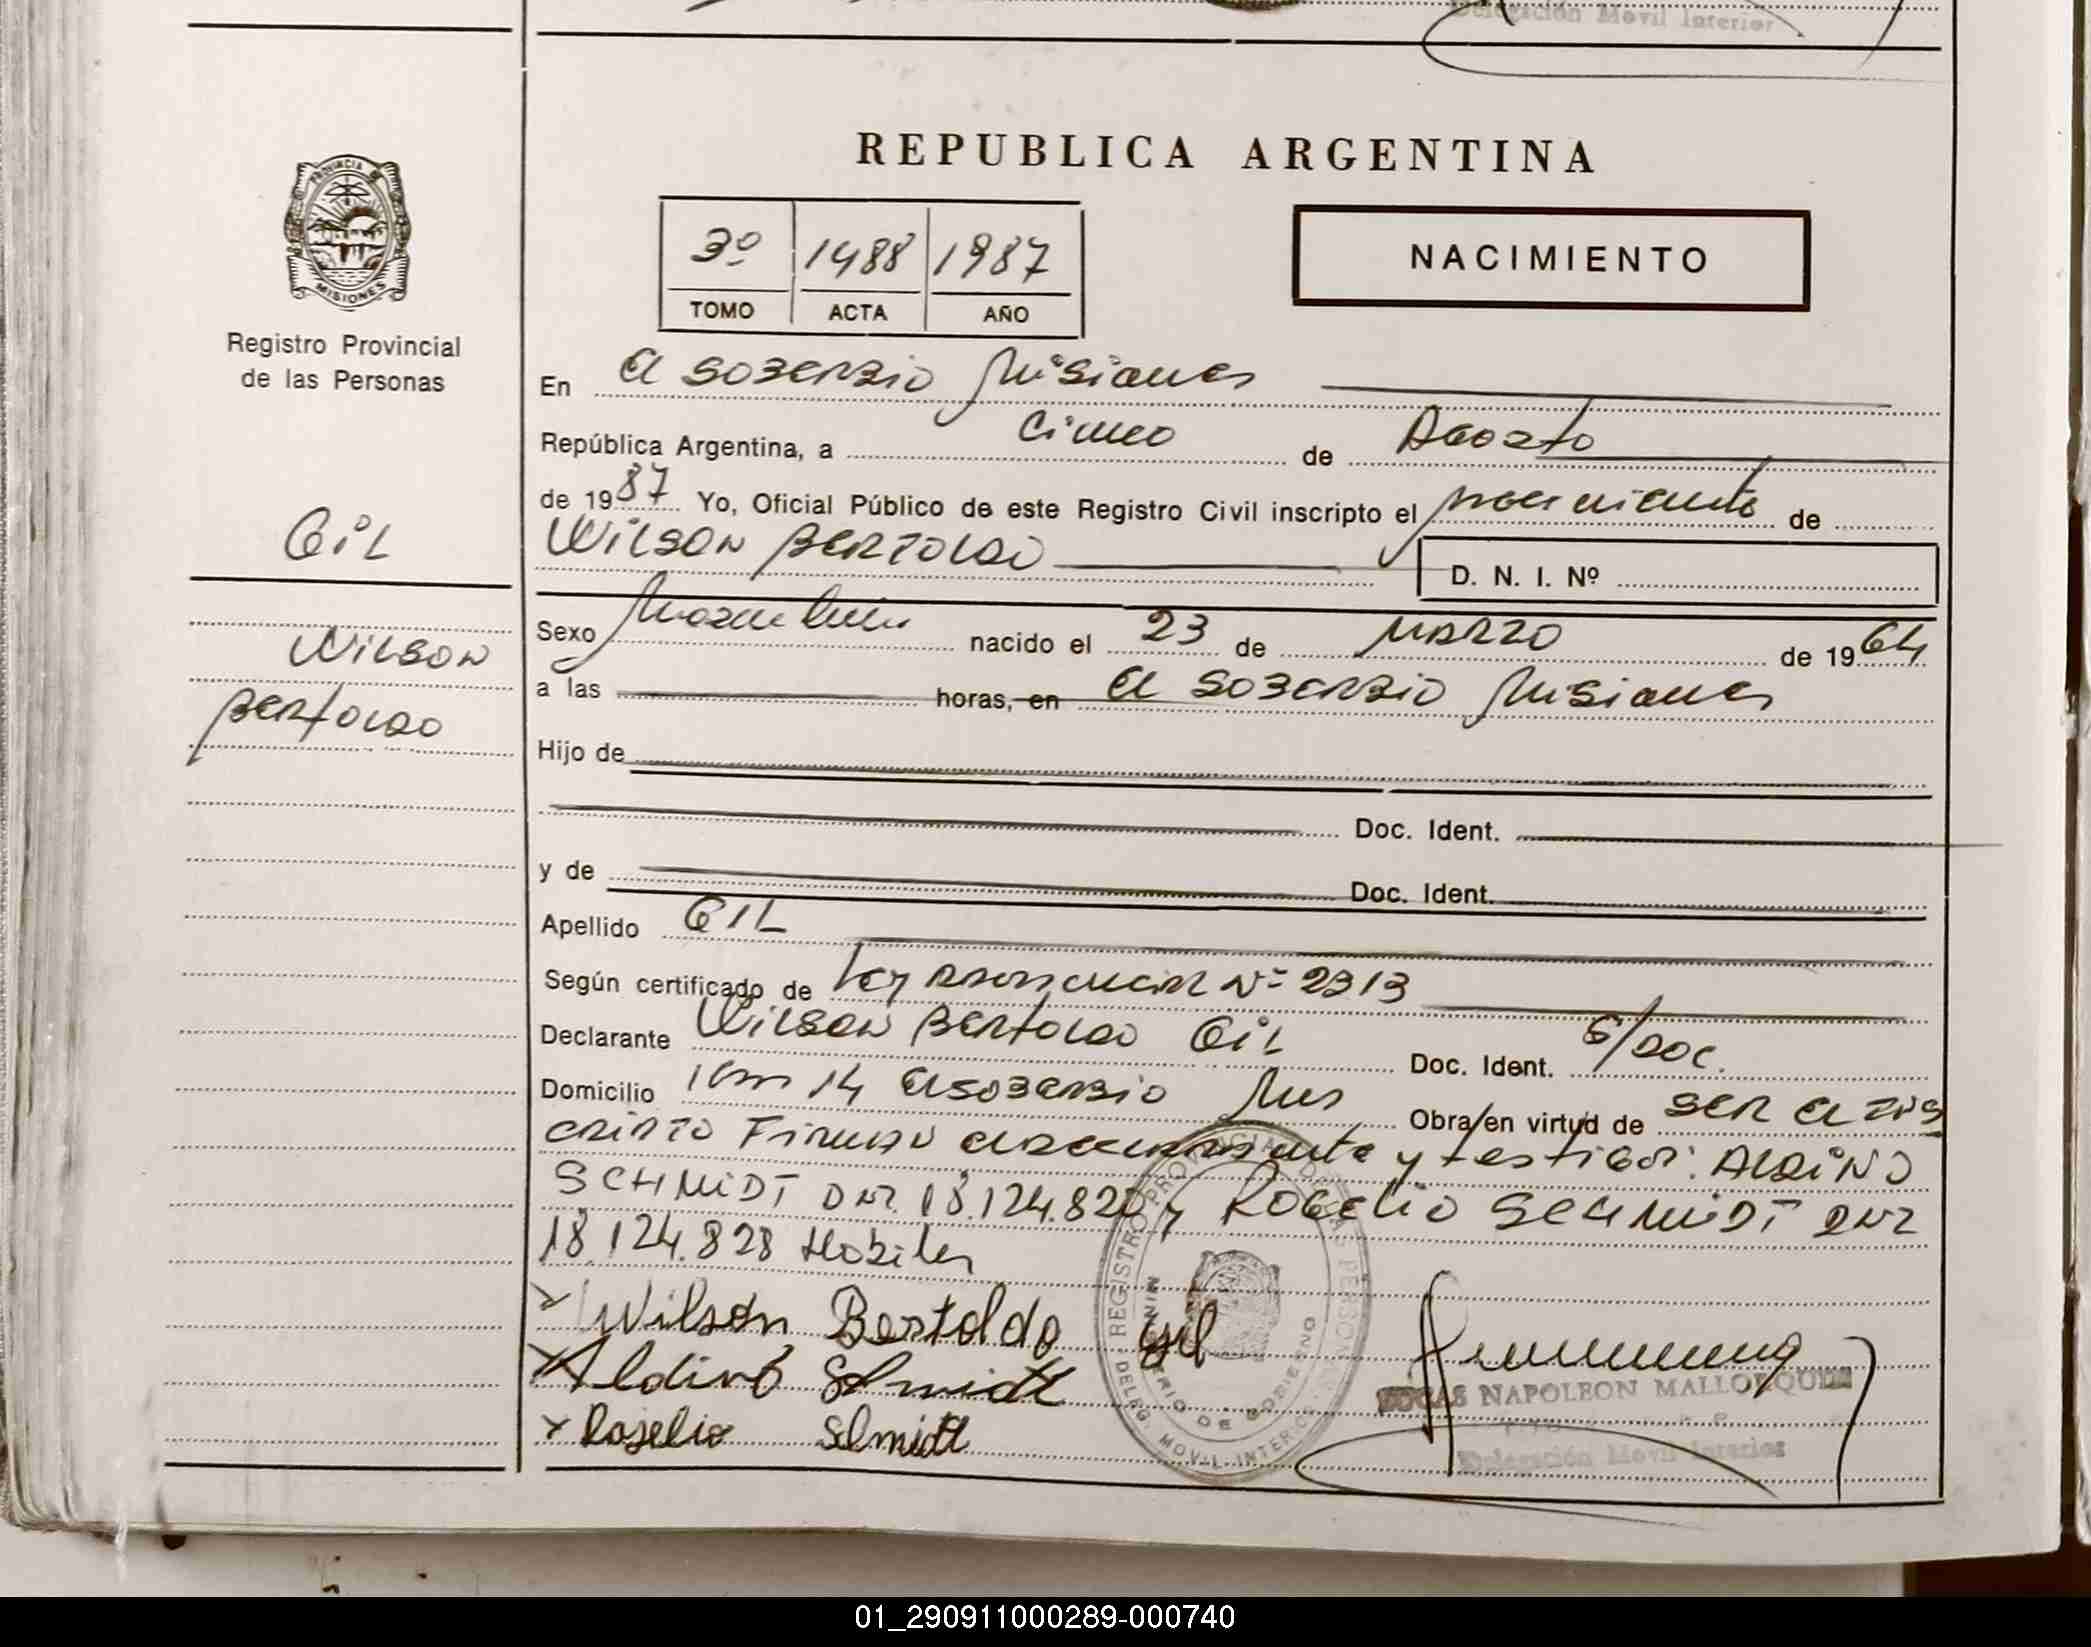 Delegación Movil Interior
REPUBLICA ARGENTINA
PROVINCIA DE
MISIONES
Registro Provincial
de las Personas
3º 1488 1987
TOMO ACTA AÑO
NACIMIENTO
En El SOBERBIO Misiones
República Argentina, a Cinco de Agosto
de 1987 Yo, Oficial Público de este Registro Civil inscripto el nacimiento de
GIL
WILSON BERTOLDO
D. N. I. Nº
WILSON
BERTOLDO
Sexo Masculino nacido el 23 de MARZO de 1964
a las horas, en El SOBERBIO Misiones
Hijo de
Doc. Ident.
y de Doc. Ident.
Apellido GIL
Según certificado de Ley Nº 2313
Declarante WILSON BERTOLDO GIL Doc. Ident. S/DOC.
Domicilio Km 14 El SOBERBIO Mns Obra/en virtud de SER El INS
CRIPTO Firman el declarante y testigos: ALDINO
SCHMIDT DNI. 18.124.820 y ROGELIO SCHMIDT DNI
18.124.828 Habiles
Wilson Bertoldo Gil
Aldino Schmidt
Rogelio Schmidt
REGISTRO PROVINCIAL DE LAS PERSONAS
MINISTERIO DE GOBIERNO
DELEG. MOVIL INTERIOR
LUCAS NAPOLEON MALLORQUIN
Delegación Movil Interior
01_290911000289-000740